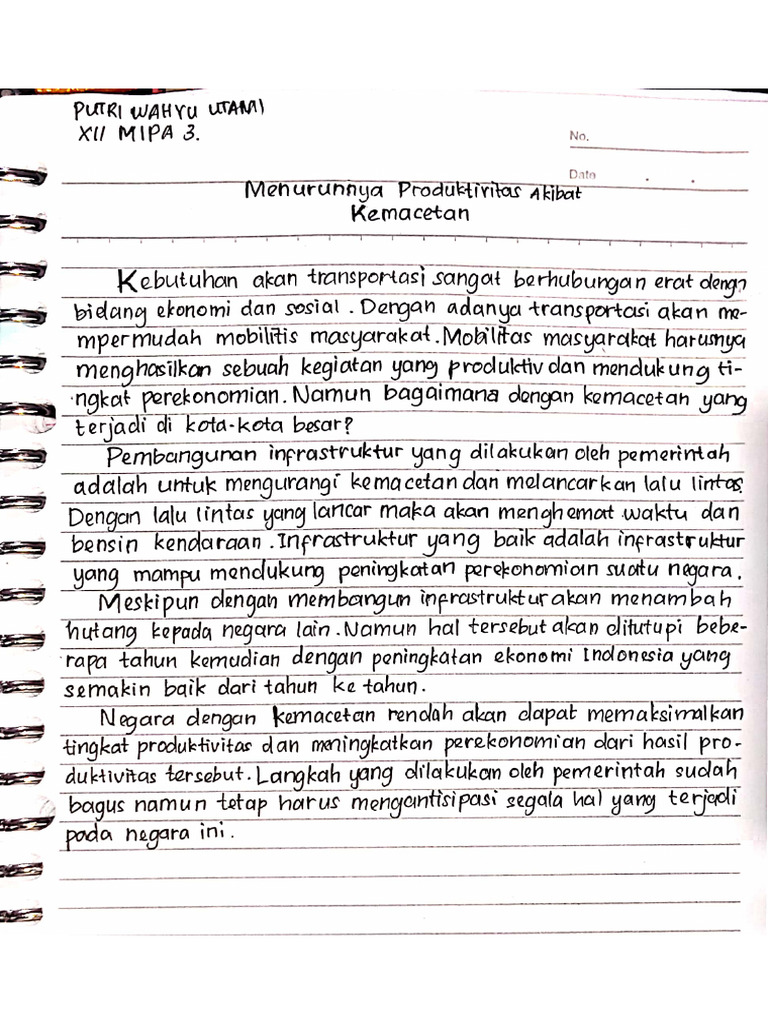 PUTRI WAHYU UTAMI
XII MIPA 3.
No.
Date
Menurunnya Produktivitas Akibat
Kemacetan
Kebutuhan akan transportasi sangat berhubungan erat denga
bidang ekonomi dan sosial. Dengan adanya transportasi akan me-
mpermudah mobilitis masyarakat. Mobilitas masyarakat harusnya
menghasilkan sebuah kegiatan yang produktiv dan mendukung ti-
ngkat perekonomian. Namun bagaimana dengan kemacetan yang
terjadi di kota-kota besar?
Pembangunan infrastruktur yang dilakukan oleh pemerintah
adalah untuk mengurangi kemacetan dan melancarkan lalu lintas.
Dengan lalu lintas yang lancar maka akan menghemat waktu dan
bensin kendaraan. Infrastruktur yang baik adalah infrastruktur
yang mampu mendukung peningkatan perekonomian suatu negara.
Meskipun dengan membangun infrastruktur akan menambah
hutang kepada negara lain. Namun hal tersebut akan ditutupi bebe-
rapa tahun kemudian dengan peningkatan ekonomi Indonesia yang
semakin baik dari tahun ke tahun.
Negara dengan kemacetan rendah akan dapat memaksimalkan
tingkat produktivitas dan meningkatkan perekonomian dari hasil pro-
duktivitas tersebut. Langkah yang dilakukan oleh pemerintah sudah
bagus namun tetap harus mengantisipasi segala hal yang terjadi
pada negara ini.